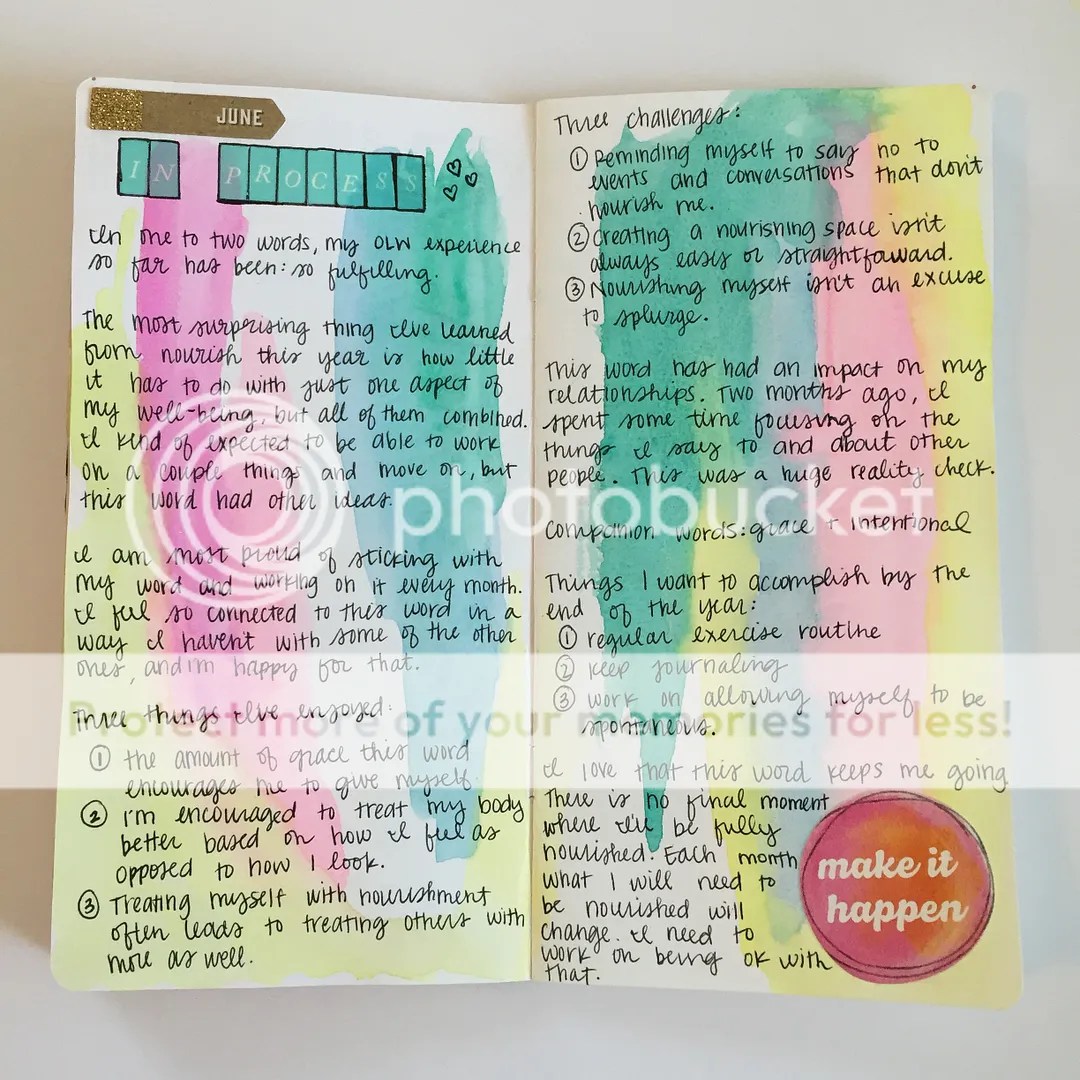 JUNE
IN PROCESS
In one to two words, my OLW experience
so far has been: so fulfilling.
The most surprising thing I've learned
from nourish this year is how little
it has to do with just one aspect of
my well-being, but all of them combined.
I kind of expected to be able to work
on a couple things and move on, but
this word had other ideas.
I am most proud of sticking with
my word and working on it every month.
I feel so connected to this word in a
way I haven't with some of the other
ones, and i'm happy for that.
Three things I've enjoyed:
① the amount of grace this word
encourages me to give myself.
② I'm encouraged to treat my body
better based on how I feel as
opposed to how I look.
③ Treating myself with nourishment
often leads to treating others with
more as well.
Three challenges:
① Reminding myself to say no to
events and conversations that don't
nourish me.
② Creating a nourishing space isn't
always easy or straightfoward.
③ Nourishing myself isn't an excuse
to splurge.
This word has had an impact on my
relationships. Two months ago, I
spent some time focusing on the
things I say to and about other
people. This was a huge reality check.
Companion words: grace + intentional
Things I want to accomplish by the
end of the year:
① regular exercise routine
② keep journaling
③ work on allowing myself to be
spontaneous.
I love that this word keeps me going
There is no final moment
where I'll be fully
nourished. Each month
what I will need to
be nourished will
change. I need to
work on being ok with
that.
make it
happen
photobucket
Protect more of your memories for less!